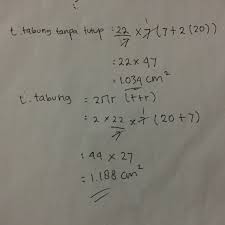 t. tabung tanpa tutup : 22/7 × 7 1 (7+2(20))
: 22 × 47
: 1.034 cm²
t. tabung = 2πr (t+r)
: 2 × 22/7 × 7 1 (20+7)
: 44 × 27
: 1.188 cm²